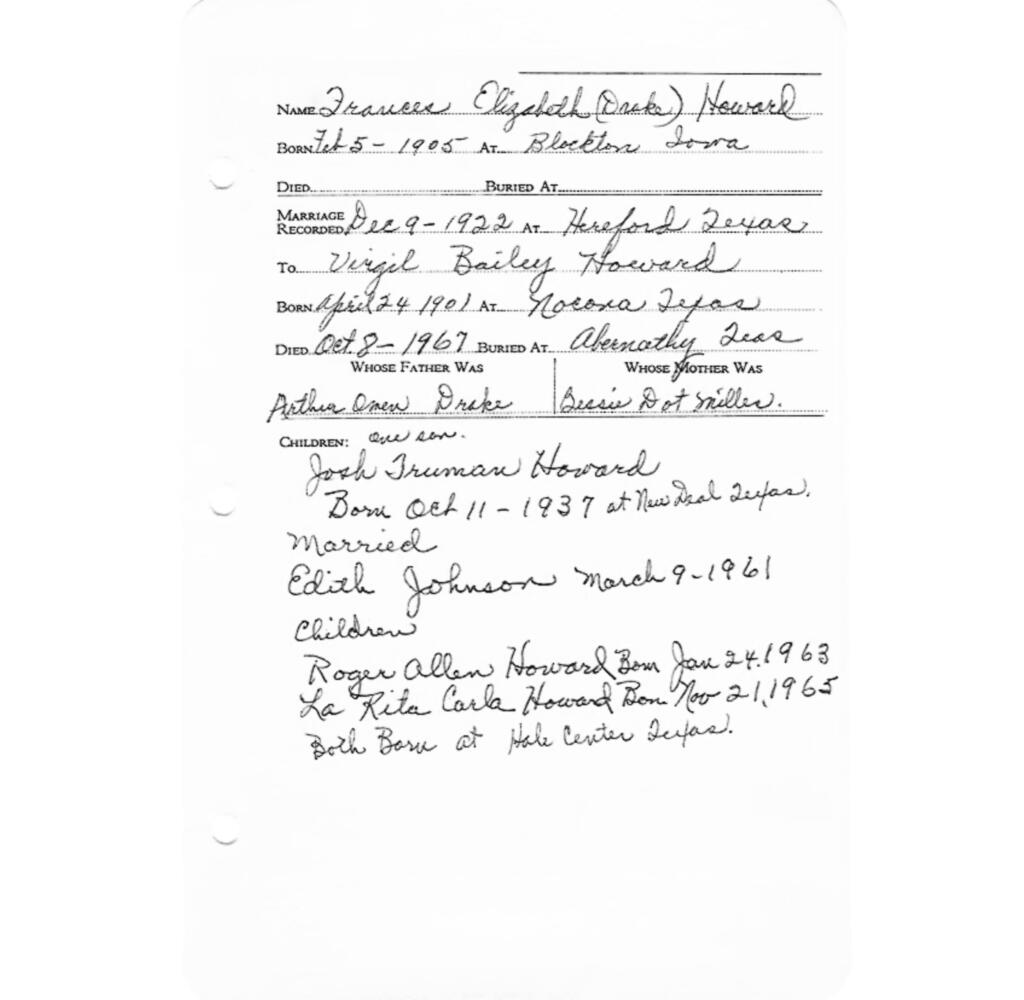 NAME Frances Elizabeth (Drake) Howard
BORN Feb 5 - 1905 AT Blockton Iowa
DIED BURIED AT
MARRIAGE RECORDED Dec 9 - 1922 AT Hereford Texas
TO Virgil Bailey Howard
BORN April 24 1901 AT Nocona Texas
DIED Oct. 8 - 1967 BURIED AT Abernathy Teas
WHOSE FATHER WAS WHOSE MOTHER WAS
Arthur Omen Drake Bessie Dot Miller.
CHILDREN: one son.
Josh Truman Howard
Born Oct 11 - 1937 at New Deal Texas.
Married
Edith Johnson March 9 - 1961
Children
Roger Allen Howard Born Jan 24, 1963
La Rita Carla Howard Born Nov 21, 1965
Both Born at Hale Center Texas.